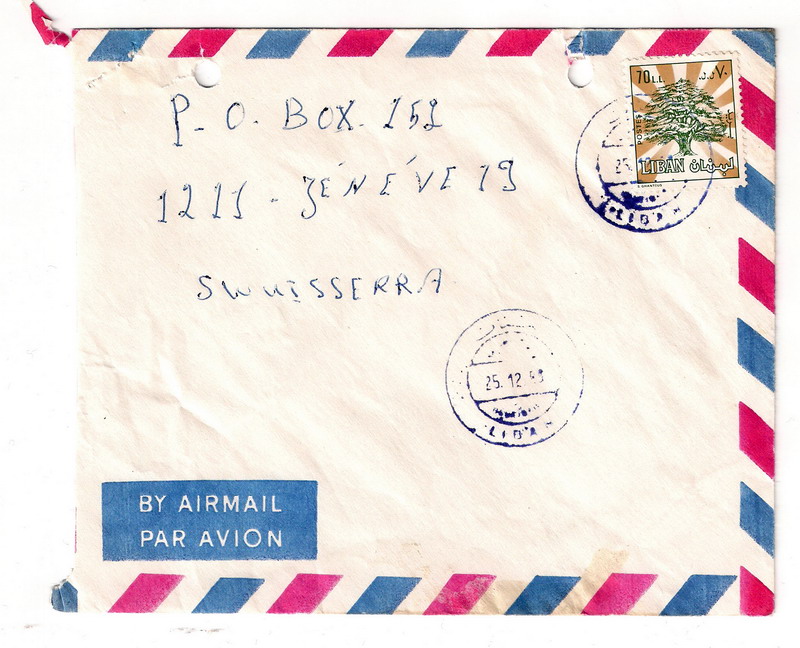 P-O-BOX.151
1211-JÉNÉVE19
SWUISSERRA
70 L.L.
POSTES
LIBAN لبنان
25.12
LIBAN
25.12
LIBAN
BY AIRMAIL
PAR AVION